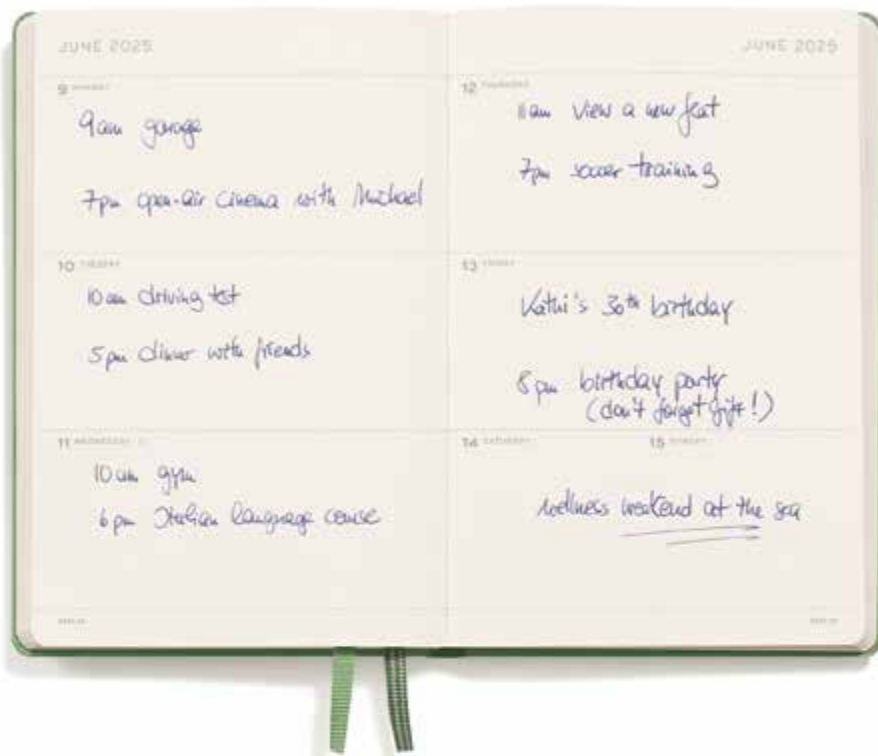 JUNE 2025
9 MONDAY
9am garage
7pm open-air cinema with Michael
10 TUESDAY
10am driving test
5pm dinner with friends
11 WEDNESDAY
10am gym
6pm Italian language course
JUNE 2025
12 THURSDAY
11am view a new flat
7pm soccer training
13 FRIDAY
Kathi's 30th birthday
8pm birthday party
(don't forget gift!)
14 SATURDAY 15 SUNDAY
wellness weekend at the sea